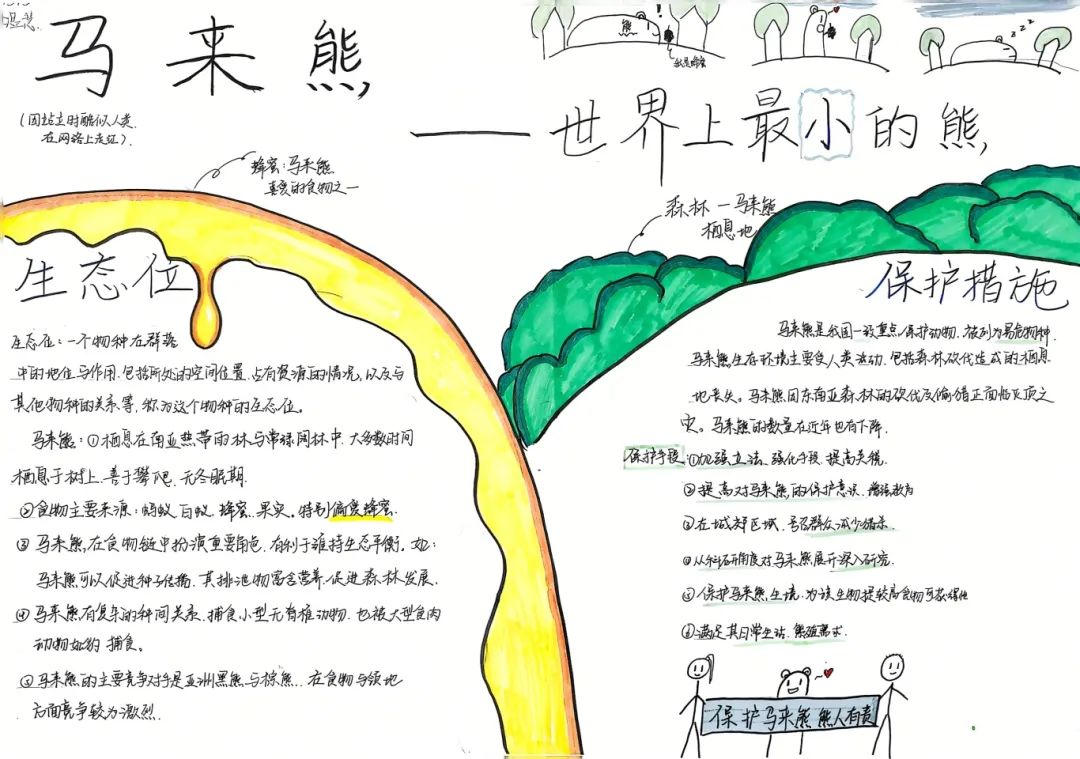 马来熊,
(因站立时酷似人类,
在网络上走红).
——世界上最小的熊,
熊
我是蜂蜜
zzz
蜂蜜:马来熊
喜爱的食物之一
森林—马来熊
栖息地
生态位
生态位:一个物种在群落
中的地位与作用.包括所处的空间位置.占有资源的情况.以及与
其他物种的关系等,称为这个物种的生态位。
马来熊:①栖息在南亚热带雨林与常绿阔林中.大多数时间
栖息于树上.善于攀爬.无冬眠期.
②食物主要来源:蚂蚁.白蚁.蜂蜜.果实。特别偏爱蜂蜜.
③马来熊,在食物链中扮演重要角色.有利于维持生态平衡。如:
马来熊可以促进种子传播.其排泄物富含营养.促进森林发展.
④马来熊,有复杂的种间关系.捕食小型无脊椎动物.也被大型食肉
动物如豹 捕食。
⑤马来熊的主要竞争对手是亚洲黑熊与棕熊...在食物与领地
方面竞争较为激烈.
保护措施
马来熊是我国一级重点保护动物.被列为易危物种.
马来熊生存环境主要受人类活动.包括森林砍伐造成的栖息
地丧失。马来熊,因东南亚森林的砍伐及偷猎正面临灭顶之
灾。马来熊的数量在近年也有下降.
保护手段:①加强立法、强化手段.提高关税.
②提高对马来熊,的保护意识.增强教育
③在城郊区域.号召群众减少猎杀.
④从科研角度对马来熊,展开深入研究.
⑤保护马来熊,生境.为该生物提较高食物可获得性
⑥满足其日常生活.繁殖需求.
保护马来熊 熊人有责